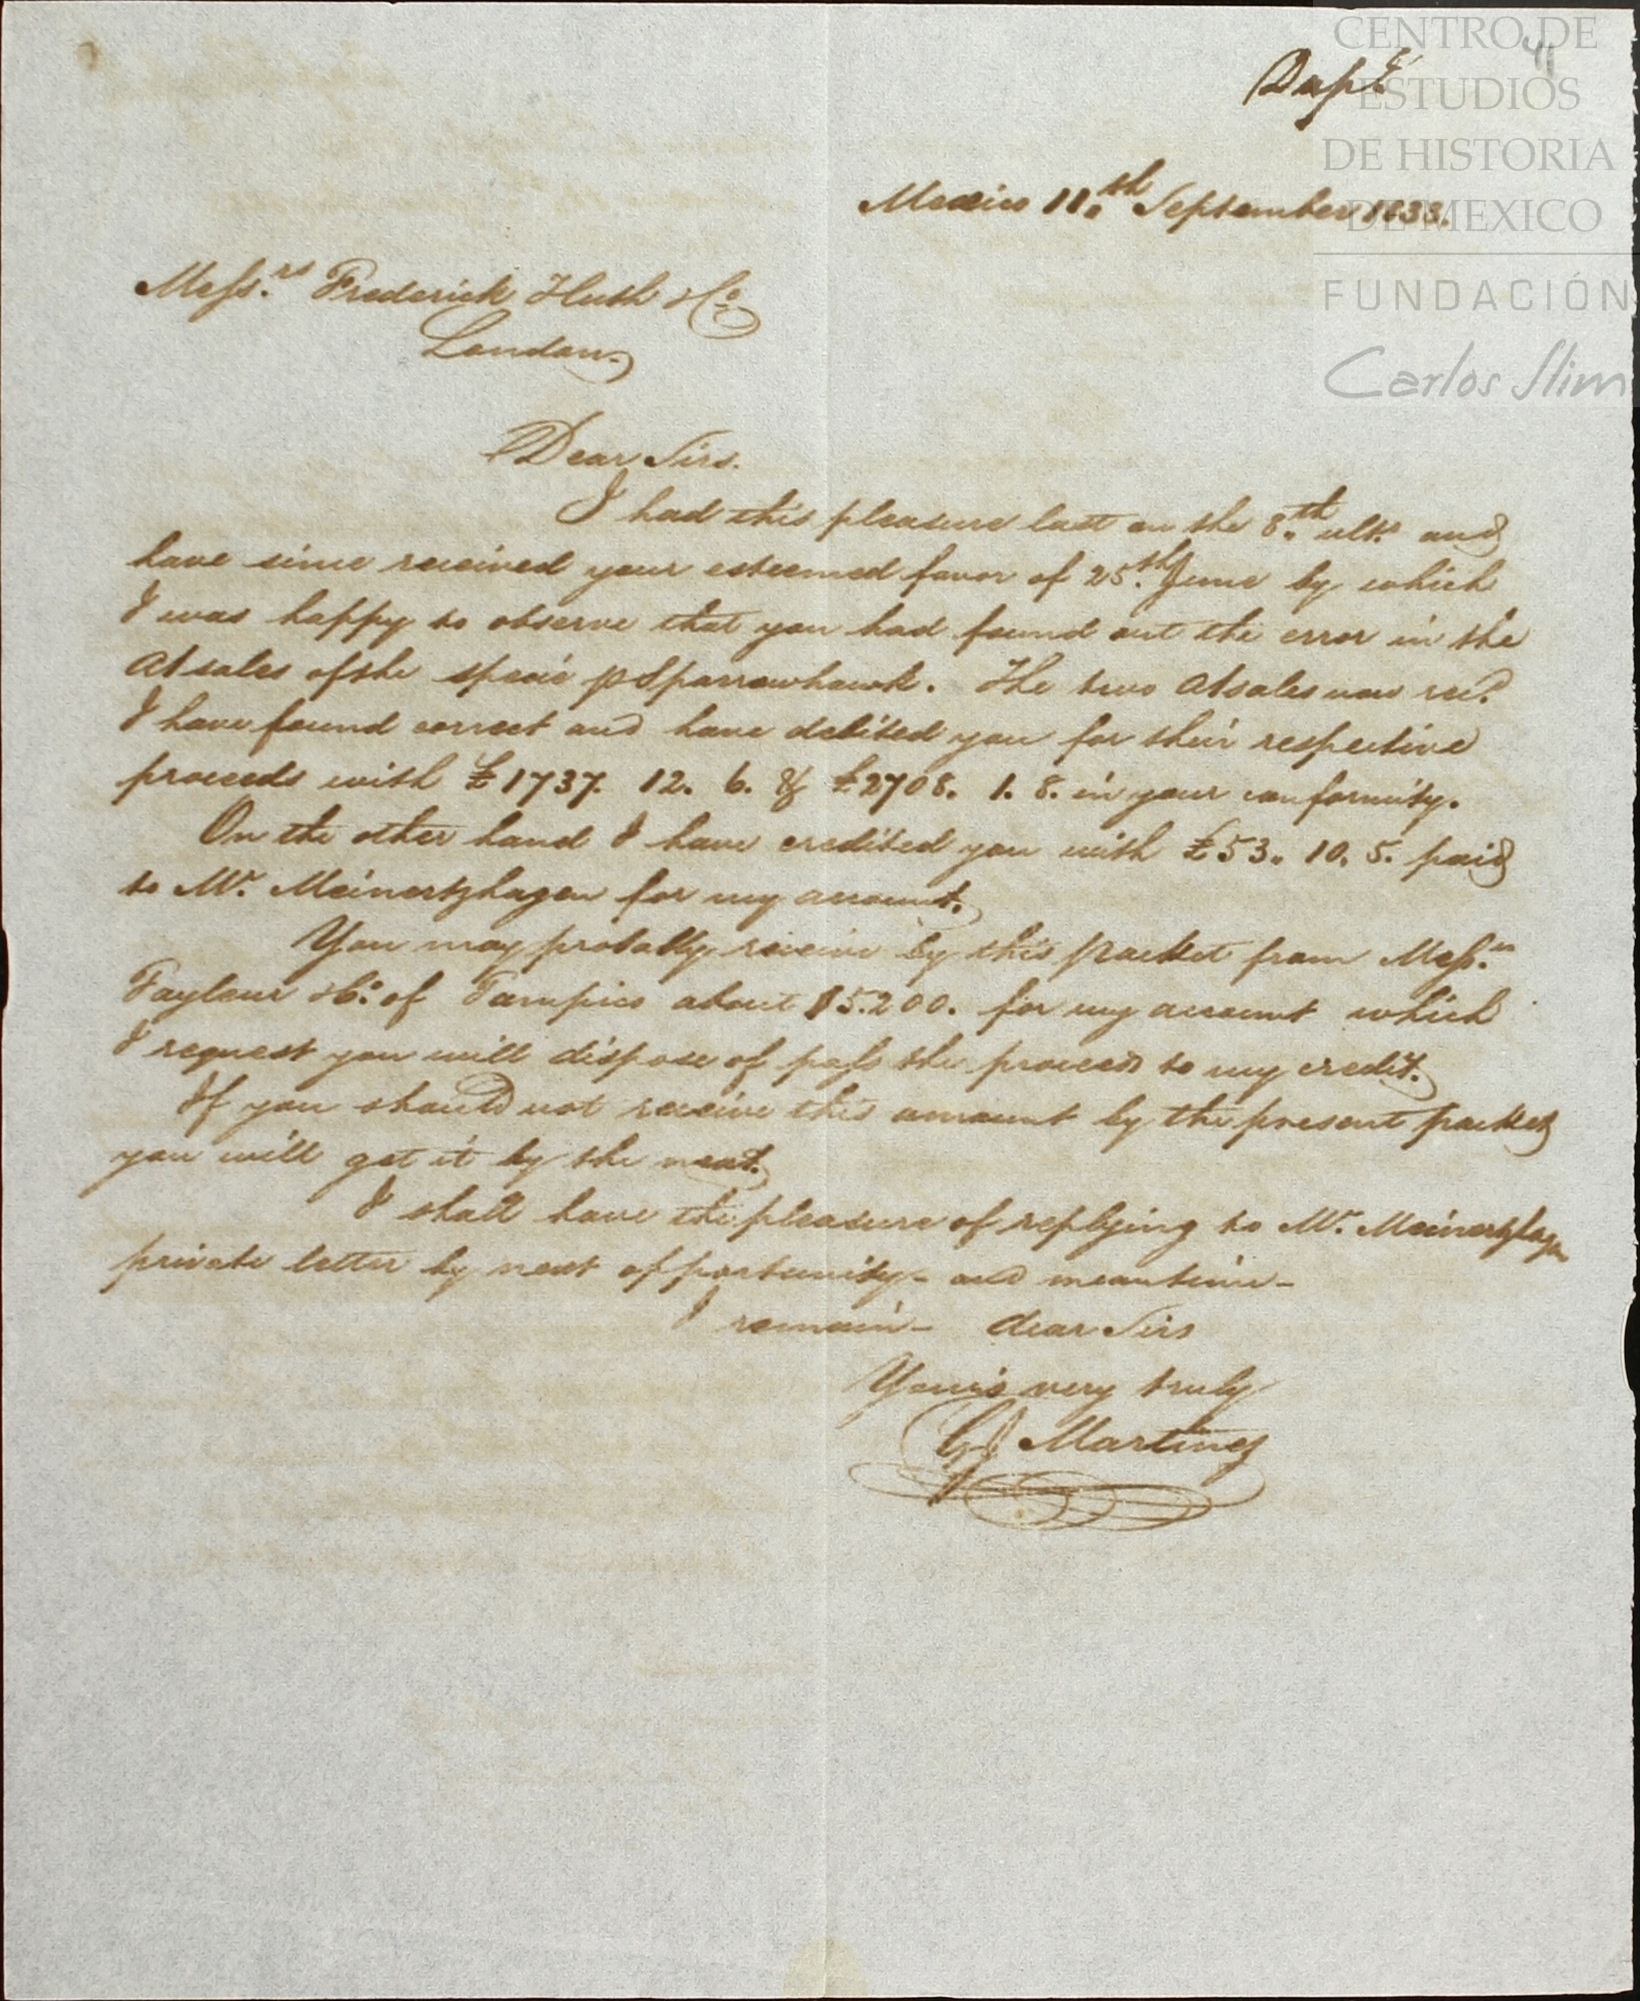 CENTRO DE
ESTUDIOS
DE HISTORIA
DE MEXICO
FUNDACIÓN
Carlos Slim
Mexico 11.th September 1838.
Messrs Frederick Huth & Co
London
Dear Sirs.
I had this pleasure last on the 8.th ulto. and
have since received your esteemed favor of 25.th June by which
I was happy to observe that you had found out the error in the
a/sales of the specie p Sparrowhawk. The two a/sales now recd.
I have found correct and have debited you for their respective
proceeds with £1737. 12. 6. & £2708. 1. 8. in your conformity.
On the other hand I have credited you with £53. 10. 5. paid
to Mr. Meinertzhagen for my account.
You may probably receive by this packet from Messrs
Tayleur & Co. of Tampico about $5.200. for my account which
I request you will dispose of pass the proceeds to my credit.
If you should not receive this amount by the present packet
you will get it by the next.
I shall have the pleasure of replying to Mr. Meinertzhagen
private letter by next opportunity - and meantime -
I remain - dear Sirs
Your's very truly
Martinez